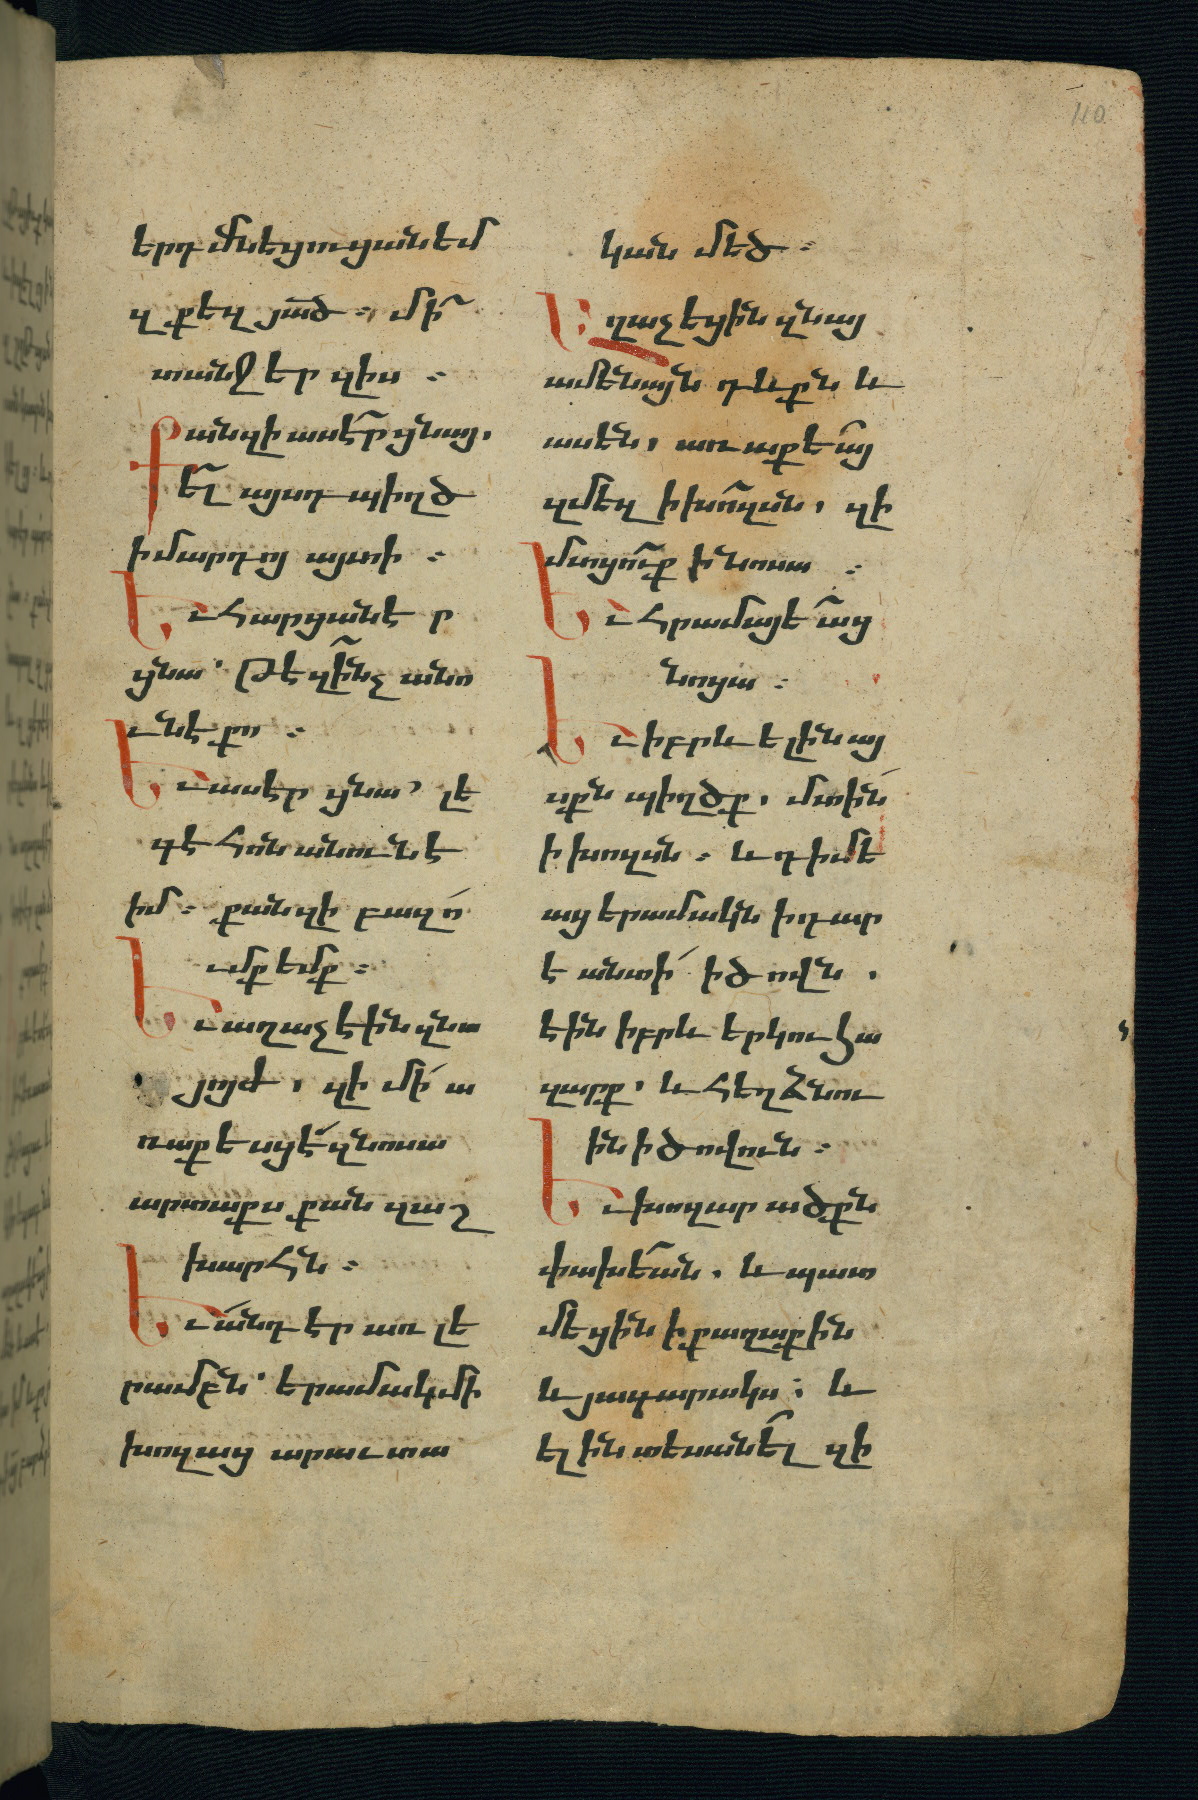 110
երդմնեցուցանեմ
զքեզ յա՟ծ ։ մի՛
տանջեր զիս ։
Քանզի ասէր ցնայ,
ե՛լ այսդ պիղծ
ի մարդոյ այտի ։
Եւ հարցանէր
ցնա՝ թէ զի՞նչ անո
ւն է քո ։
Եւ ասէր ցնա՝ լէ
գէհոն անուն է
իմ ։ քանզի բազո՛
ւմք եմք ։
Եւ աղաչէին զնա
յոյժ, զի մի՛ ա
ռաքեսցէ զնոսա
արտաքս քան զաշ
խարհն ։
Եւ անդ էր առ լե
րամբն՝ երամակ մի
խոզաց արաւտա
կան մեծ ։
Աղաչեցին զնայ
ամենայն դևքն և
ասեն, առաքեա՛յ
զմեզ ի խոզսն, զի
մտցո՛ւք ի նոսա ։
Եւ հրամայեաց
նոցա ։
Եւ իբրև ելին այ
սքն պիղծք, մտին
ի խոզսն ։ և դիմե
աց երամակն ի դար
է անտի՛ ի ծովն ,
էին իբրև երկու հա
զարք, և հեղձնու
ին ի ծովուն ։
Եւ խոզարածքն
փախեան, և պատ
մեցին ի քաղաքին
և յագարակս ։ և
ելին տեսանել զի